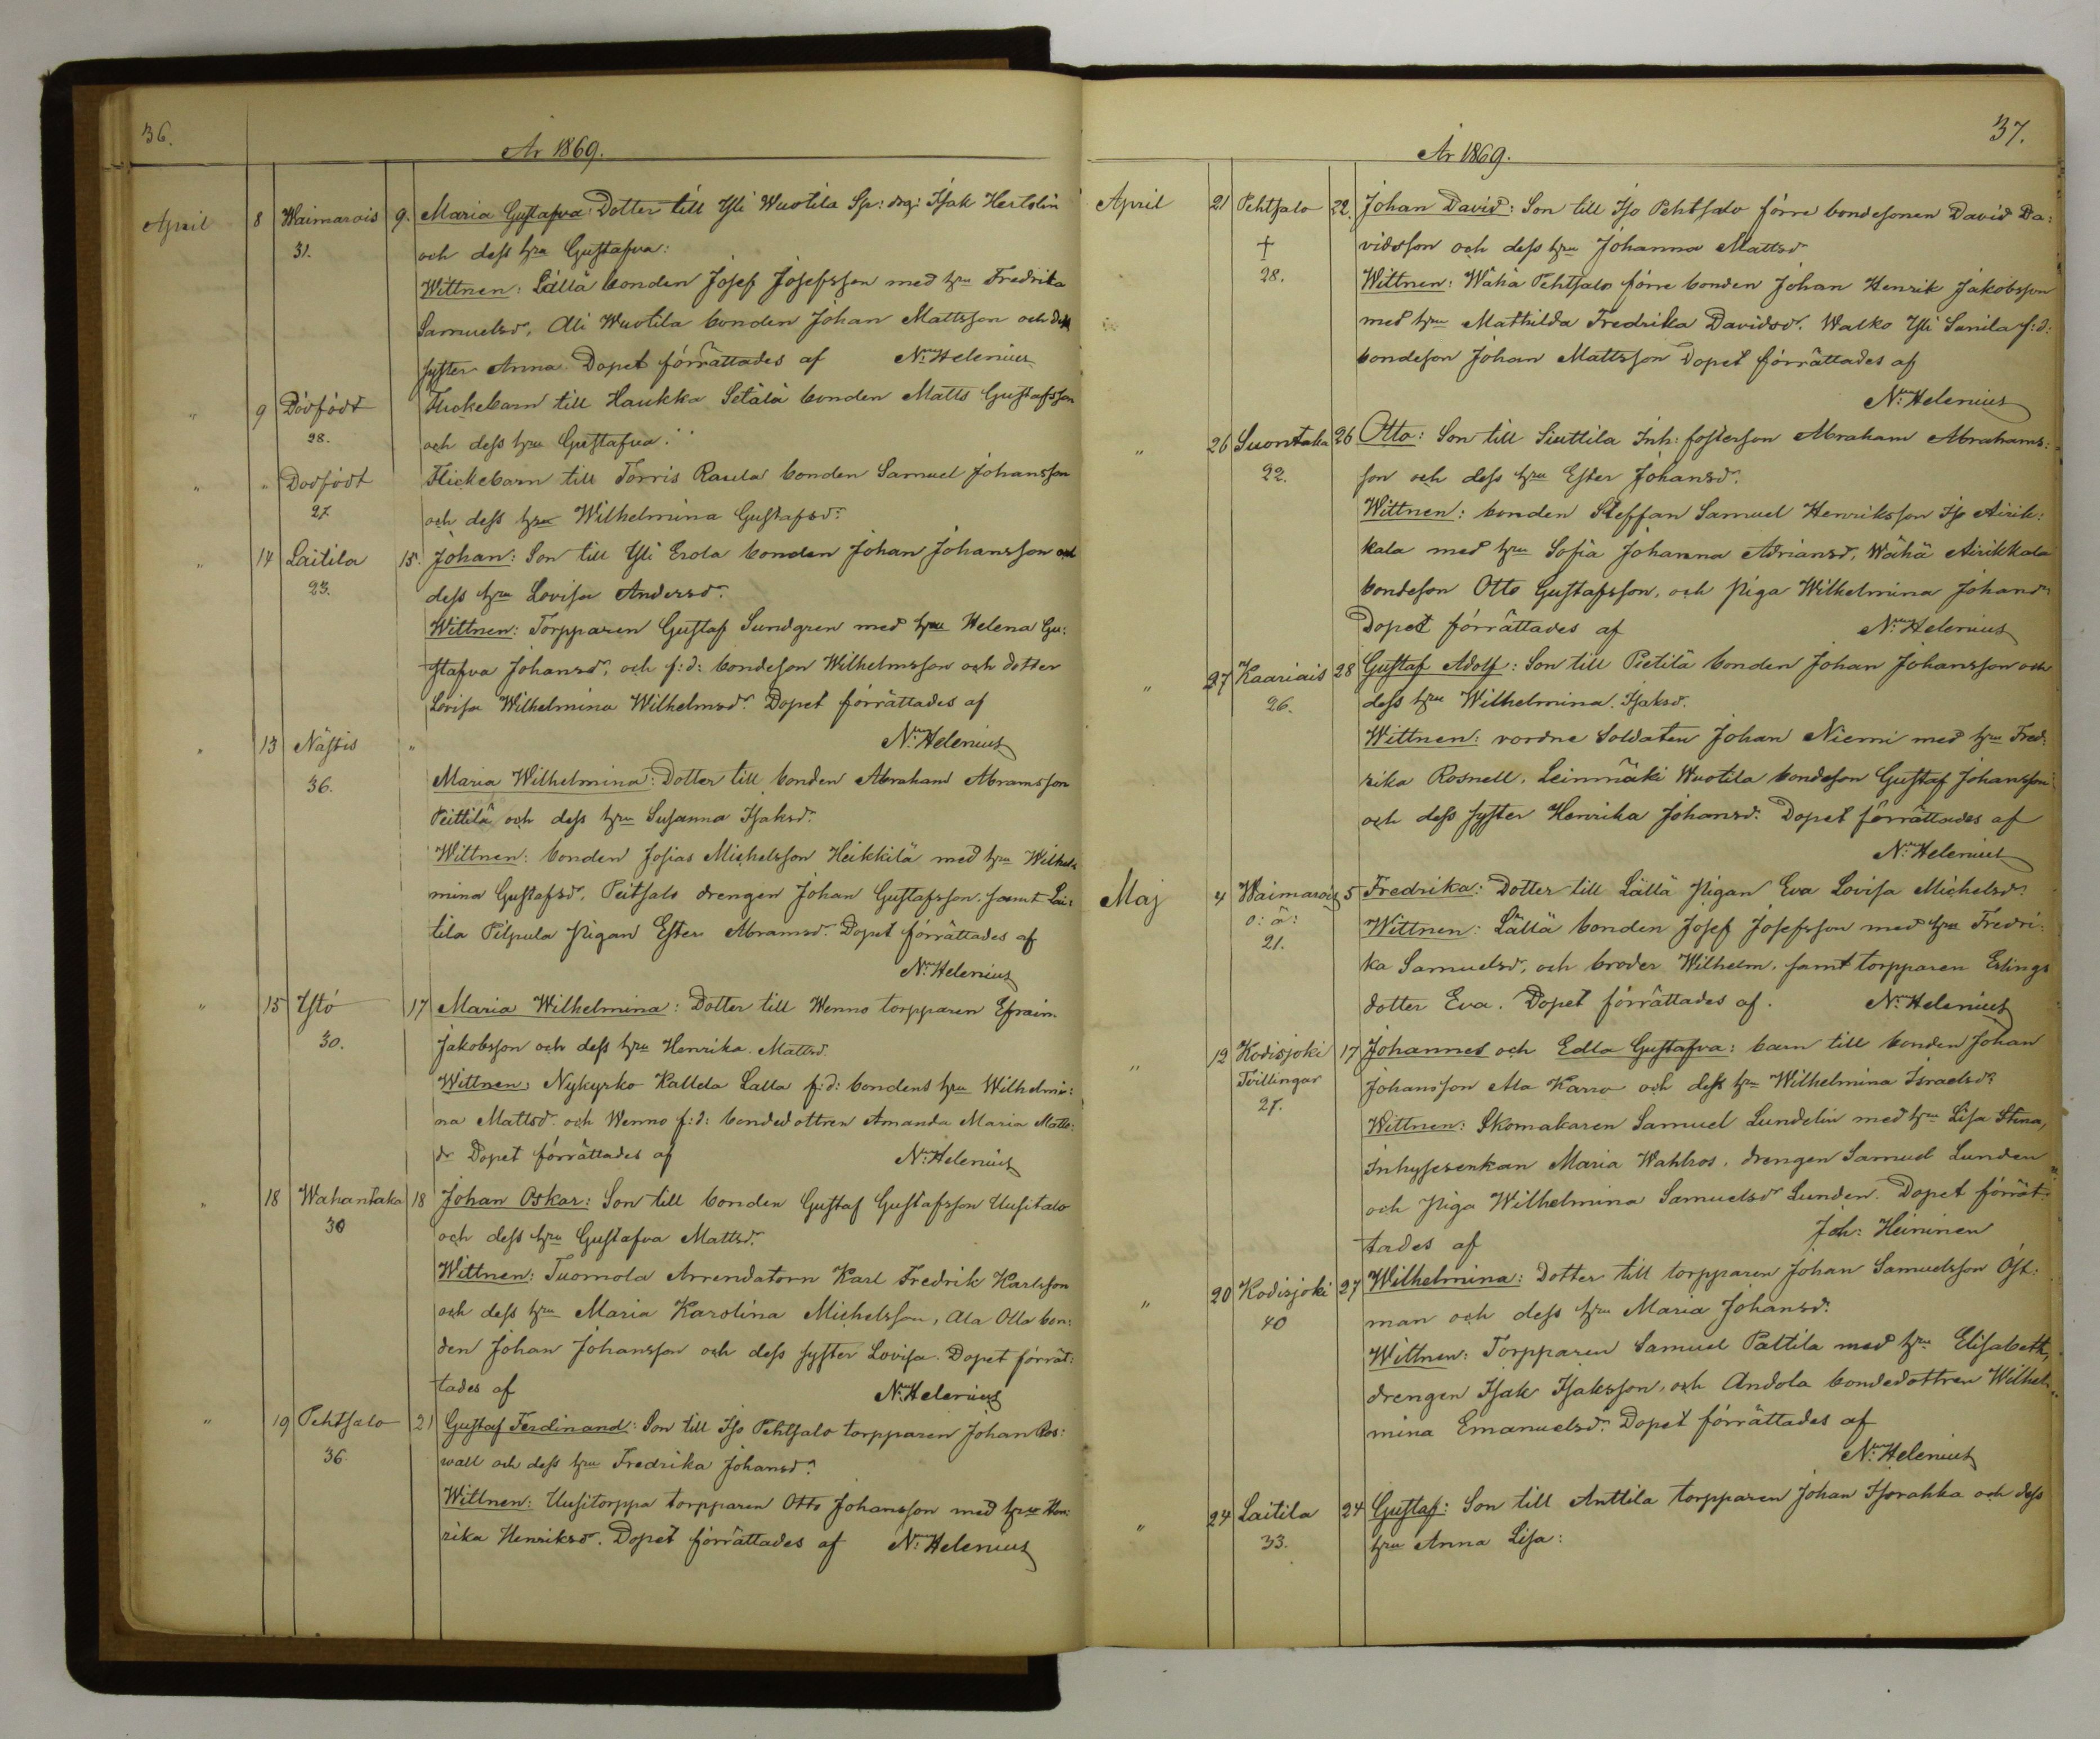 36.
År 1869.
April 8 Waimarais 9. Maria Gustafva Dotter till Yli Wuotila Spr: drg: Isak Hertelin
31. och dess hru Gustafva:
Wittnen: Lällä bonden Josef Josefsson med hru Fredrika
Samuelsdr, Ali Wuotila bonden Johan Mattsson och dess
syster Anna. Dopet förrättades af N. Helenius
" 9 Dödfödt Flickebarn till Haukka Setälä bonden Matts Gustafsson
28. och dess hru Gustafva:
" " Dödfödt Flickebarn till Torris Raula bonden Samuel Johansson
27. och dess hru Wilhelmina Gustafsdr.
" 14 Laitila 15. Johan: Son till Yli Erola bonden Johan Johansson och
23. dess hru Lovisa Andersdr.
Wittnen: Torpparen Gustaf Sundgren med hru Helena Gu:
stafva Johansdr, och f:d: bondeson Wilhelmsson och dotter
Lovisa Wilhelmina Wilhelmsdr. Dopet förrättades af
N. Helenius
" 13 Nästis "
36. Maria Wilhelmina: Dotter till bonden Abraham Abramsson
Peittilä och dess hru Susanna Isaksdr.
Wittnen: bonden Josias Michelsson Heikkilä med hru Wilhel:
mina Gustafsdr, Peitsalo drengen Johan Gustafsson, samt Lai:
tila Pilpula pigan Ester Abramsdr. Dopet förrättades af
N. Helenius
" 15 Ystö 17 Maria Wilhelmina: Dotter till Wenno torpparen Efraim
30. Jakobsson och dess hru Henrika Mattsdr.
Wittnen: Nykyrko Kallela Lalla f:d: bondens hru Wilhelmi:
na Mattsdr och Wenno f:d: bondedottren Amanda Maria Matts:
dr Dopet förrättades af N. Helenius
" 18 Wahantaka 18 Johan Oskar: Son till bonden Gustaf Gustafsson Uusitalo
30 och dess hru Gustafva Mattsdr.
Wittnen: Tuomola Arrendatorn Karl Fredrik Karlsson
och dess hru Maria Karolina Michelsson, Ala Olla bon:
den Johan Johansson och dess syster Lovisa. Dopet förrät:
tades af N. Helenius
" 19 Pehtsalo 21 Gustaf Ferdinand: Son till Iso Pehtsalo torpparen Johan Ros:
36. wall och dess hru Fredrika Johansdr.
Wittnen: Uusitorppa torpparen Otto Johansson med hru Hen:
rika Henriksdr. Dopet förrättades af N. Helenius
37.
År 1869.
April 21 Pehtsalo 22. Johan David: Son till Iso Pehtsalo förre bondesonen David Da:
† vidsson och dess hru Johanna Mattsdr
28. Wittnen: Wähä Pehtsalo förre bonden Johan Henrik Jakobsson
med hru Mathilda Fredrika Davidsdr. Walko Yli Sanila f:d:
bondeson Johan Mattsson Dopet förrättades af
N. Helenius
" 26 Suontaka 26 Otto: Son till Siuttila Inh: fosterson Abraham Abrahams:
22. son och dess hru Ester Johansdr.
Wittnen: bonden Steffan Samuel Henriksson Iso Airik:
kala med hru Sofia Johanna Adriansdr, Wähä Airikkala
bondeson Otto Gustafsson, och piga Wilhelmina Johansdr
Dopet förrättades af N. Helenius
" 27 Kaariais 28 Gustaf Adolf: Son till Pietilä bonden Johan Johansson och
26. dess hru Wilhelmina Isaksdr.
Wittnen: vordne Soldaten Johan Niemi med hru Fred:
rika Rosnell, Leinmäki Wuotila bondeson Gustaf Johansson
och dess syster Henrika Johansdr. Dopet förrättades af
N. Helenius
Maj 4 Waimarais 5 Fredrika: Dotter till Lällä pigan Eva Lovisa Michelsdr
o: ä: Wittnen: Lällä bonden Josef Josefsson med hru Fredri:
21. ka Samuelsdr, och broder Wilhelm, samt torpparen Erlings
dotter Eva. Dopet förrättades af. N. Helenius
" 12 Kodisjoki 17 Johannes och Edla Gustafva: barn till bonden Johan
Tvillingar Johansson Ala Karro och dess hru Wilhelmina Israelsdr
27. Wittnen: Skomakaren Samuel Lundelin med hru Lisa Stina,
Inhysesenkan Maria Wahlros, drengen Samuel Lunden
och piga Wilhelmina Samuelsdr Lunden. Dopet förrät:
tades af Joh: Heininen
" 20 Kodisjoki 27 Wilhelmina: Dotter till torpparen Johan Samuelsson Öst:
40 man och dess hru Maria Johansdr.
Wittnen: Torpparen Samuel Pattila med hru Elisabeth,
drengen Isak Isaksson, och Andola bondedottren Wilhel:
mina Emanuelsdr. Dopet förrättades af
N. Helenius
" 24 Laitila 24 Gustaf: Son till Anttila torpparen Johan Isorahka och dess
33. hru Anna Lisa: